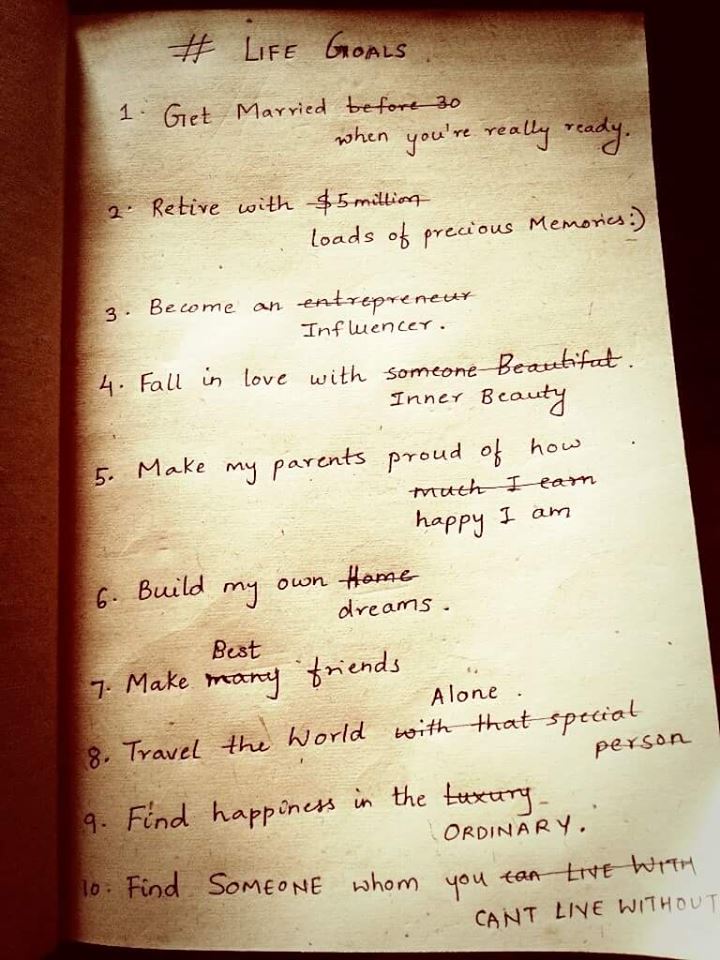 # LIFE GOALS
1. Get Married before 30
when you're really ready.
2. Retire with $5 million
loads of precious Memories:)
3. Become an entrepreneur
Influencer.
4. Fall in love with someone Beautiful.
Inner Beauty
5. Make my parents proud of how
much I earn
happy I am
6. Build my own Home
dreams.
Best
7. Make many friends
Alone.
8. Travel the World with that special
person
9. Find happiness in the Luxury
ORDINARY.
10. Find SOMEONE whom you can LIVE WITH
CANT LIVE WITHOUT